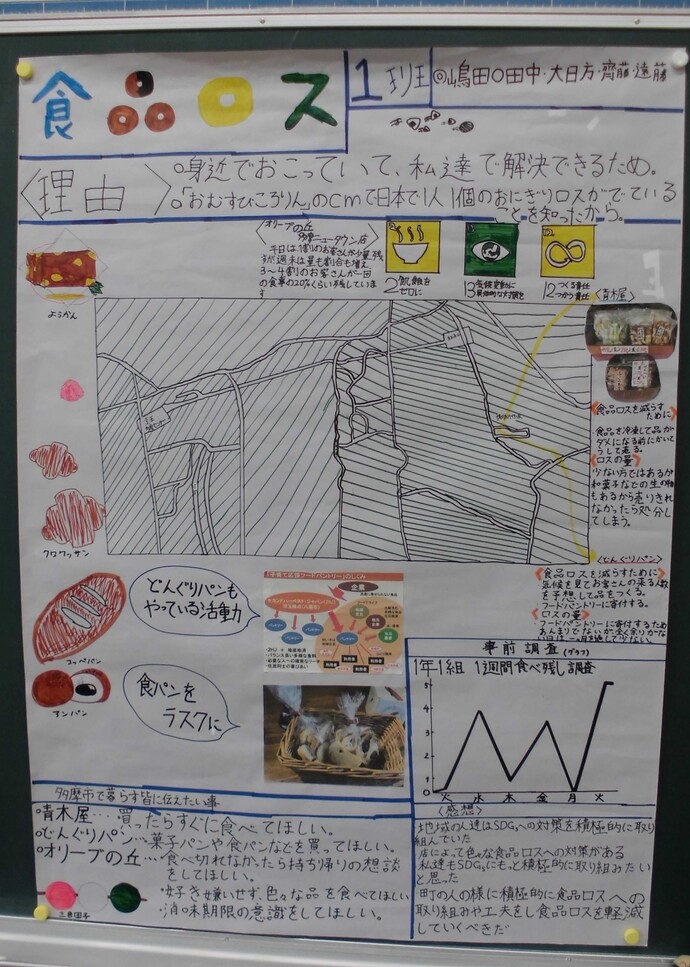 食品ロス
1班 ◎嶋田○田中・大日方・齊藤・遠藤
〈理由〉
○身近でおこっていて、私達で解決できるため。
○「おむすびころりん」のcmで日本で1人1個のおにぎりロスがでている
ことを知ったから。
〈オリーブの丘
多摩ニュータウン店〉
平日は1割のお客さんが少量残
すが週末は量も割合も増え
3〜4割のお客さんが一回
の食事の20%くらい残していま
す
2飢餓を
ゼロに
13気候変動に
具体的な対策を
12つくる責任
つかう責任
〈青木屋〉
ようかん
クロワッサン
コッペパン
アンパン
《食品ロスを減らす
ために》
食品を冷凍して品が
ダメになる前にかいと
うして売る。
《ロスの量》
少ない方ではあるが
和菓子などの生の物
もあるから売りきれ
なかったら処分し
てしまう。
〈どんぐりパン〉
《食品ロスを減らすために》
気候を見てお客さんの来る人数
を予想して品をつくる。
フードパントリーに寄付する。
《ロスの量》
フードパントリーに寄付するため
あんまりでないが
どんぐりパンも
やっている活動
「子育て応援フードパントリー」のしくみ
企業
食パンを
ラスクに
事前調査(グラフ)
1年1組 1週間食べ残し調査
5
4
3
2
1
0
火 水 木 金 月 火
〈感想〉
地域の人達はSDGsへの対策を積極的に取り
組んでいた
店によって色々な食品ロスへの対策がある
私達もSDGsにもっと積極的に取り組みたい
と思った
・町の人の様に積極的に食品ロスへの
取り組みや工夫をし食品ロスを軽減
していくべきだ
多摩市で暮らす皆に伝えたい事
・青木屋…買ったらすぐに食べてほしい。
・どんぐりパン…菓子パンや食パンなどを買ってほしい。
・オリーブの丘…食べ切れなかったら持ち帰りの想談
をしてほしい。
・好き嫌いせず、色々な品を食べてほしい
・消味期限の意識をしてほしい。
三色団子